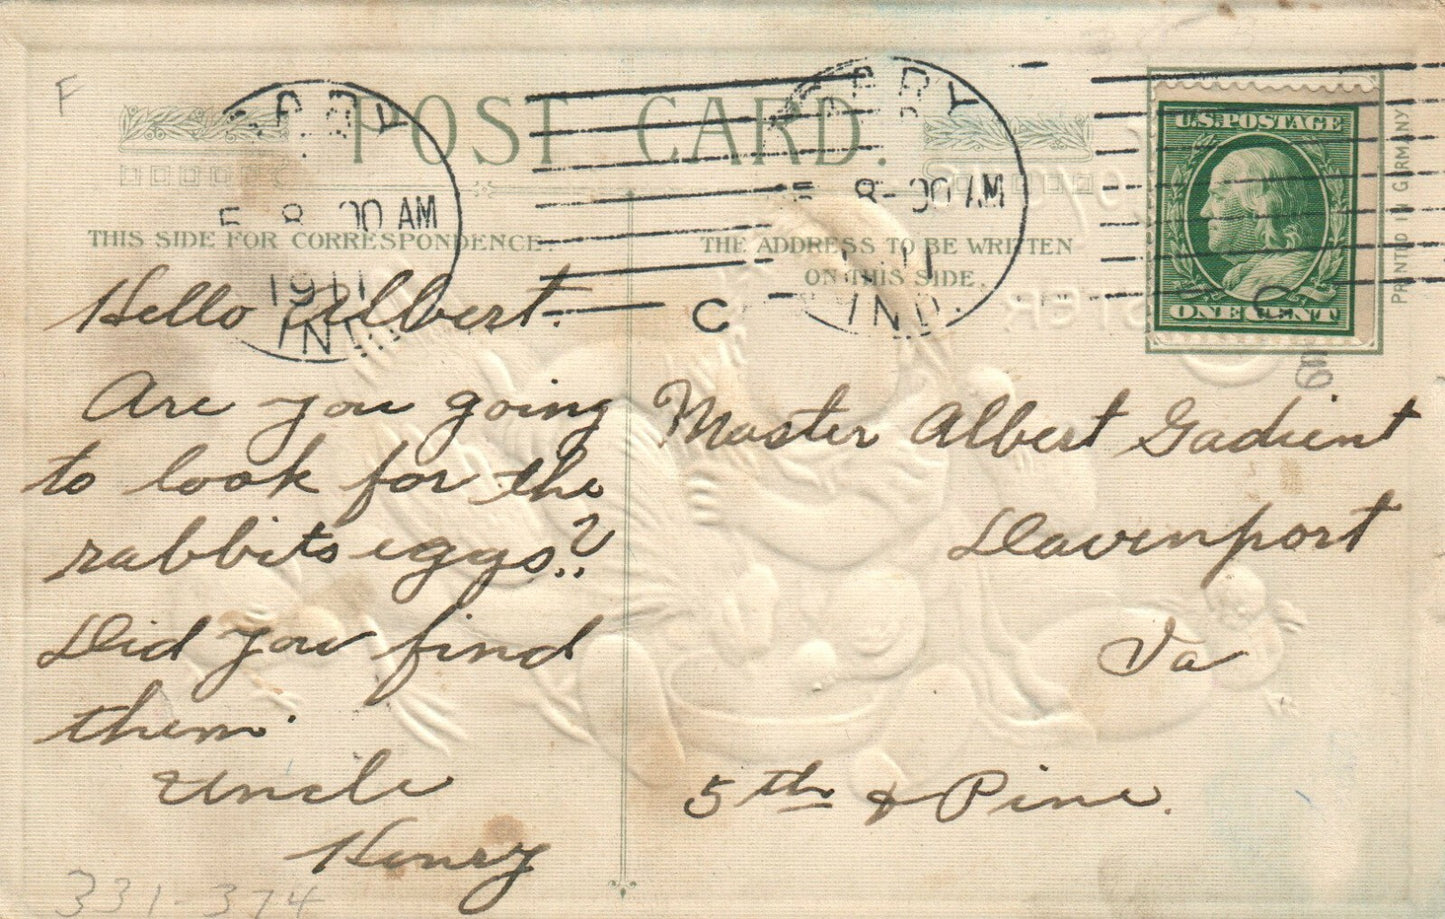 F
POST CARD.
GARY
8-00 AM
1911
IND.
GARY
8-00 AM
IND.
C
U.S. POSTAGE
ONE CENT
PRINTED IN GERMANY
THIS SIDE FOR CORRESPONDENCE.
THE ADDRESS TO BE WRITTEN
ON THIS SIDE.
Hello Albert.
Are you going
to look for the
rabbits eggs.?
Did you find
them.
Uncle
Henry
Master Albert Gadient
Davenport
Ia
5th & Pine.
331-374